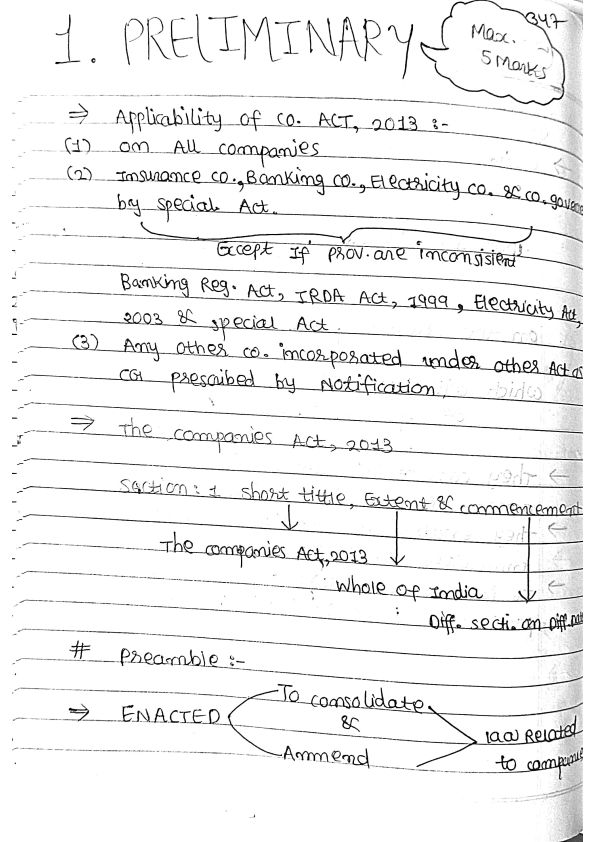 347
1. PRELIMINARY
Max.
5 Marks
⇒ Applicability of co. ACT, 2013 :-
(1) on All companies
(2) Insurance co., Banking co., Electricity co. & co. govene
by special Act.
Except If prov. are inconsistent
Banking Reg. Act, IRDA Act, 1999, Electricity Act,
2003 & special Act.
(3) Any other co. incorporated under other Act as
CG prescribed by Notification.
⇒ The companies Act, 2013
Section: 1 short tittle, Extent & commencement
The companies Act, 2013
Whole of India
Diff. secti. on Diff. dat
# Preamble :-
To consolidate
⇒ ENACTED &
Ammend
law Related
to companie